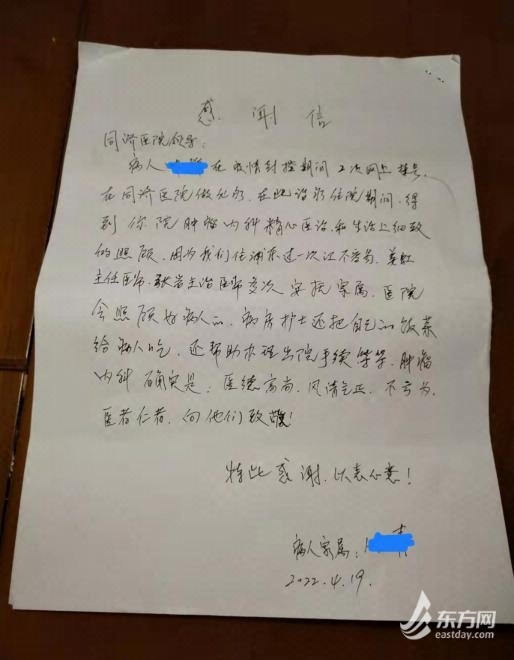 感谢信
同济医院领导:
病人 在疫情封控期间2次网上挂号
在同济医院做化疗,在此治疗住院期间,得
到你院肿瘤内科精心医治和生活上细致
的照顾,因为我们住浦东过一次江不容易,姜虹
主任医师,张岩主治医师多次安抚家属,医院
会照顾好病人的,病房护士还把自己的饭菜
给病人吃,还帮助办理出院手续等等,肿瘤
内科确实是:医德高尚,风清气正,不亏为
医者仁者,向他们致敬!
特此感谢,以表心意!
病人家属:
2022.4.19.
东方网
eastday.com